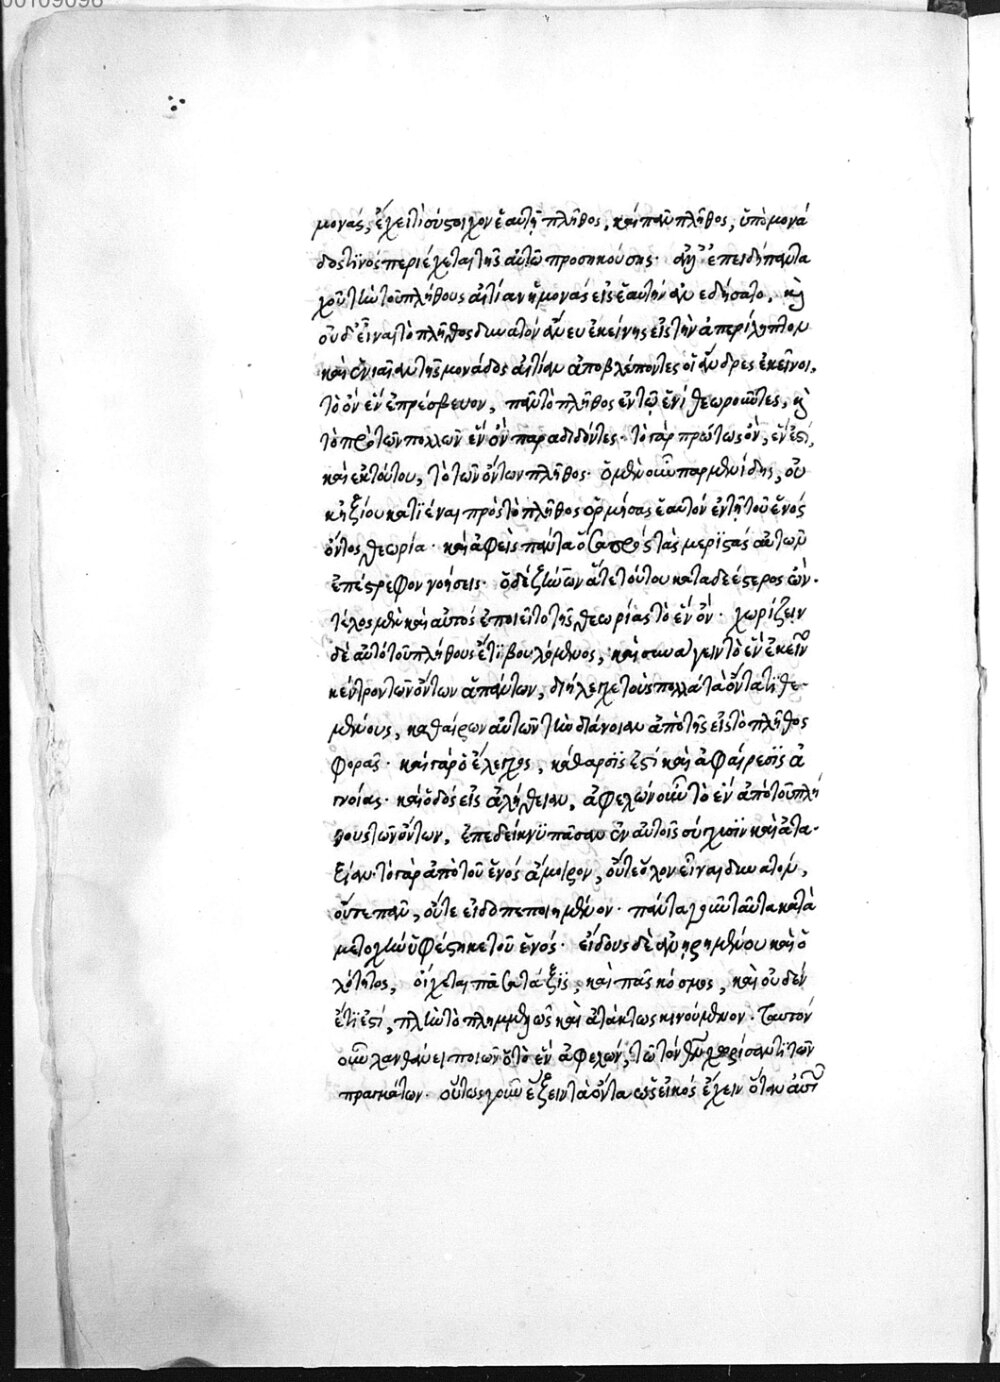 00109096
μονάς, ἔχει τὶ σύστοιχον ἑαυτῇ πλῆθος, καὶ πᾶν πλῆθος, ὑπὸ μονά
δος τινὸς περιέχεται τῆς αὐτῶ προσηκούσης· ἐπειδὴ πάντα
χοῦ τὴν τοῦ πλήθους αἰτίαν ἡ μονὰς εἰς ἑαυτὴν ἀνεδήσατο, καὶ
οὐδ' εἶναι τὸ πλῆθος δυνατὸν ἄνευ ἐκείνης εἰς τὴν ἀπερίληπτον
καὶ ἑνιαίαν τῆς μονάδος αἰτίαν ἀποβλέποντες οἱ ἄνδρες ἐκεῖνοι,
τὸ ὂν ἓν ἐπρέσβευον, πᾶν τὸ πλῆθος ἐν τῷ ἑνὶ θεωροῦντες, καὶ
τὸ πρὸ τῶν πολλῶν ἓν ὂν παραδιδόντες· τὸ γὰρ πρώτως ὂν, ἕν ἐστι,
καὶ ἐκ τούτου, τὸ τῶν ὄντων πλῆθος· ὁ μὲν οὖν παρμενίδης, οὐ
κ ἠξίου κατιέναι πρὸς τὸ πλῆθος ὁρμήσας ἑαυτὸν ἐν τῇ τοῦ ἑνὸς
ὄντος θεωρία· καὶ ἀφεὶς πάντα ὅσα πρὸς τὰς μεριστὰς αὐτὸν
ἐπέστρεφον νοήσεις· ὁ δὲ ζήνων ἅτε τούτου καταδεέστερος ὤν·
τέλος μὲν καὶ αὐτὸς ἐποιεῖτο τῆς θεωρίας τὸ ἓν ὄν· χωρίζειν
δὲ αὐτὸ τοῦ πλήθους ἔτι βουλόμενος, καὶ συναγειν τὸ ἓν ἐκεῖνο
κέντρον τῶν ὄντων ἁπάντων, διήλεγχε τοὺς πολλὰ τὰ ὄντα τιθε-
μένους, καθαίρων αὐτῶν τὴν διάνοιαν ἀπὸ τῆς εἰς τὸ πλῆθος
φορᾶς· καὶ γὰρ ὁ ἔλεγχος, κάθαρσίς ἐστι καὶ ἀφαίρεσις ἀ
γνοίας· καὶ ὁδὸς εἰς ἀλήθειαν, ἀφελὼν οὖν τὸ ἓν ἀπὸ τοῦ πλή
θους τῶν ὄντων, ἐπεδείκνυ πᾶσαν ἐν αὐτοῖς σύγχυσιν καὶ ἀτα-
ξίαν· τὸ γὰρ ἀπὸ τοῦ ἑνὸς ἄμοιρον, οὔτε ὅλον εἶναι δυνατόν,
οὔτε πᾶν, οὔτε εἰδοπεποιημένον· πάντα γοῦν ταῦτα κατὰ
μετοχὴν ὑφέστηκε τοῦ ἑνός· εἴδους δὲ ἀνῃρημένου καὶ ὁ
λότητος, οἴχεται πᾶσα τάξις, καὶ πᾶς κόσμος, καὶ οὐδὲν
ἔτι ἐστὶ, πλὴν τὸ πλημμελῶς καὶ ἀτάκτως κινούμενον· ταυτὸν
οὖν λανθάνει ποιῶν ὁ τὸ ἓν ἀφελών, τῶ τὸν θεὸν χωρίσαντι τῶν
πραγμάτων· οὕτως γοῦν ἕξειν τὰ ὄντα ὡς εἰκὸς ἔχειν ὅταν ἀπῇ